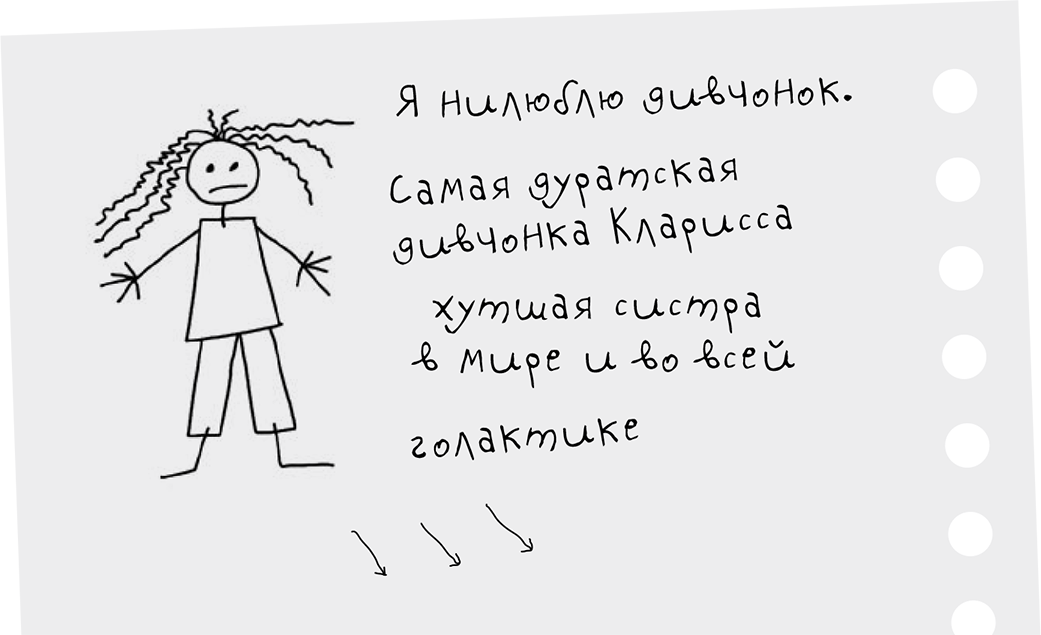 Я нилюблю дивчонок.
Самая дуратская
дивчонка Кларисса
хутшая систра
в мире и во всей
голактике